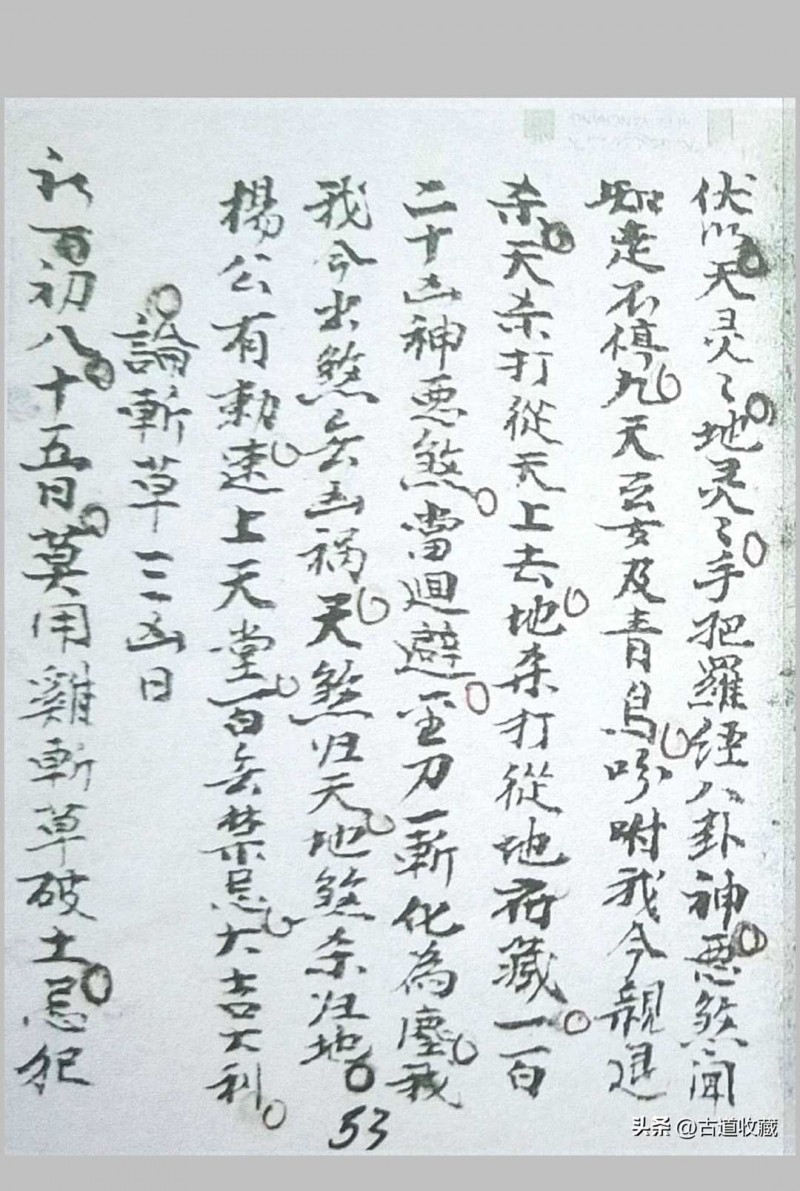 伏以。天灵々。地灵々。手把羅經八卦神。恶煞闻
知走不停。九天玄女及青鳥。吩咐我今親退
杀。天杀打從天上去。地杀打從地府藏。一百
二十凶神恶煞。當迴避。至刀一斬化為塵。我
我今出煞無凶祸。天煞归天。地煞杀归地。
楊公有勅。速上天堂。一百無禁忌。大吉大利。
。論斬草三凶日
初八。十五日。莫用雞斬草破土。忌犯
53
头条 @古道收藏